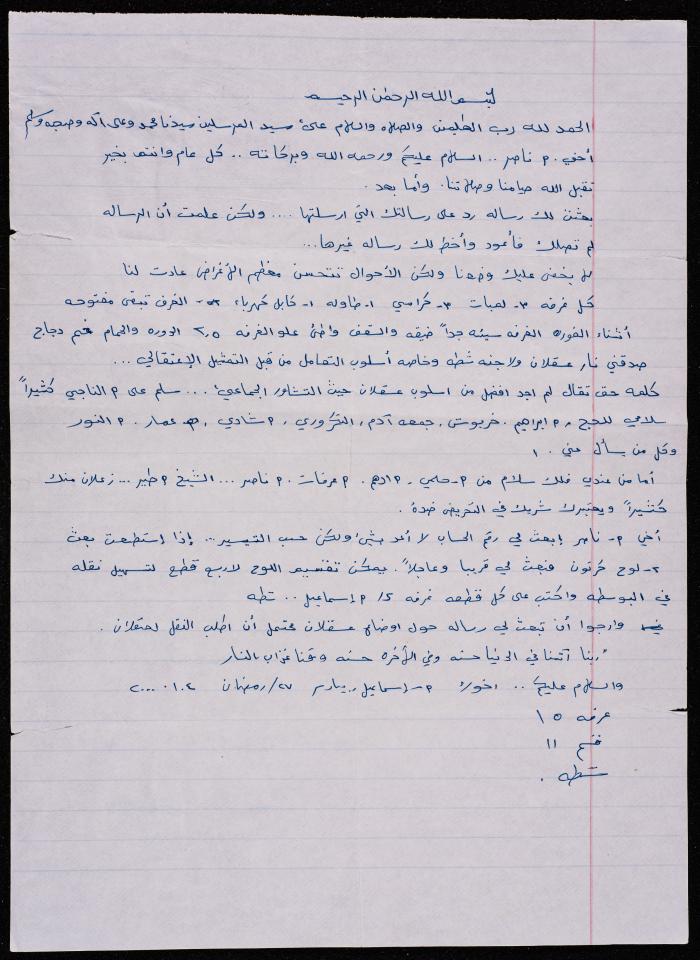 بسم الله الرحمن الرحيم
الحمد لله رب العالمين والصلاه والسلام على سيد المرسلين سيدنا محمد وعلى آله وصحبه وسلم
أخي . م ناصر .. السلام عليكم ورحمه الله وبركاته .. كل عام وانتم بخير
تقبل الله صيامنا وصلاتنا . وأما بعد .
بعثت لك رساله رد على رسالتك التي ارسلتها .... ولكن علمت أن الرساله
لم تصلك فأعود وأخط لك رساله غيرها ...
لا يخفى عليك وضعنا ولكن الأحوال تتحسن معظم الأغراض عادت لنا
كل غرفه ٣- لمبات ٣- كراسي ١- طاوله ١- كابل كهرباء الغرف تبقى مفتوحه
أثناء الفوره الغرفه سيئه جداً ضيقه والسقف واطئ علو الغرفه ٢,٥ الدوره والحمام خم دجاج
صدقني نار عسقلان ولا جنه شطه وخاصه أسلوب التعامل من قبل التمثيل الإعتقالي ...
كلمه حق تقال لم اجد افضل من اسلوب عسقلان حيث التشاور الجماعي ... سلم على م الناجي كثيراً
سلامي للحج ، م ابراهيم . خربوش . جمعه آدم . التكروري . م شادي . عمار . م النور
وكل من يسأل عني . ١
أما من عندي فلك سلام من م- حلمي . م ادهم . م عرفات . م ناصر ... الشيخ م طير ... زعلان منك
كثيراً ويعتبرك شريك في التحريض ضده .
أخي م- ناصر إبعث لي رقم الحساب لا أعد بشئ ولكن حسب التيسير ... إذا إستطعت بعث
٢- لوح كرتون فبعث لي قريبا وعاجلاً . يمكن تقسيم اللوح لاربع قطع لتسهيل نقله
في البوسطه واكتب على كل قطعه غرفه ١٥ م إسماعيل .. شطه
وارجوا أن تبعث لي رساله حول اوضاع عسقلان محتمل أن اطلب النقل لعسقلان .
ربنا آتنا في الدنيا حسنه وفي الأخره حسنه وقنا عذاب النار
والسلام عليكم .. اخوك م- إسماعيل ٢٧/رمضان
غرفه ١٥
قسم ١١
شطه .